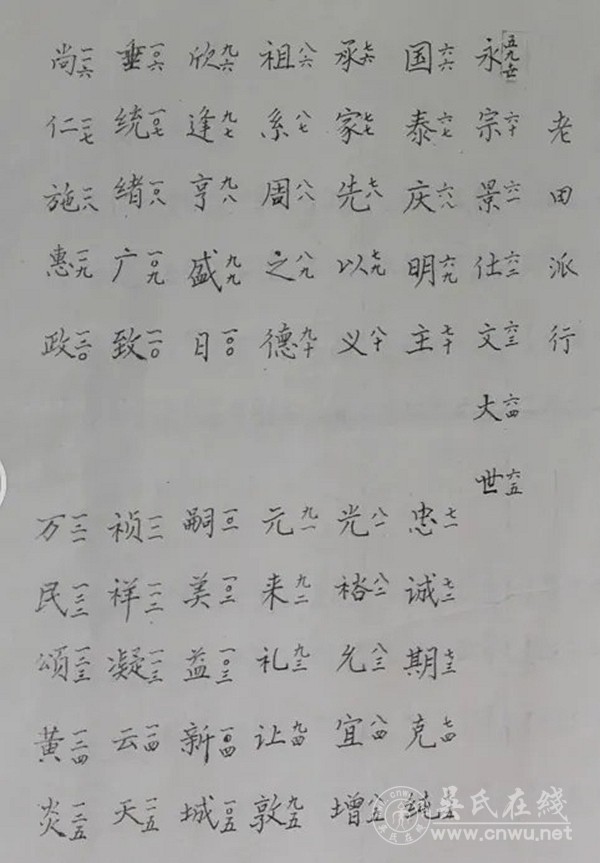 老田派行
永五九世 宗六十 景六一 仕六二 文六三 大六四 世六五
国六六 泰六七 庆六八 明六九 主七十 忠七一 诚七二 期七三 克七四 纯七五
承七六 家七七 先七八 以七九 义八十 光八一 裕八二 允八三 宜八四 增八五
祖八六 系八七 周八八 之八九 德九十 元九一 来九二 礼九三 让九四 敦九五
欣九六 逢九七 亨九八 盛九九 日一〇〇 嗣一〇一 美一〇二 益一〇三 新一〇四 城一〇五
垂一〇六 统一〇七 绪一〇八 广一〇九 致一一〇 祯一一一 祥一一二 凝一一三 云一一四 天一一五
尚一一六 仁一一七 施一一八 惠一一九 政一二〇 万一二一 民一二二 颂一二三 黄一二四 炎一二五
吴氏在线
www.cnwu.net